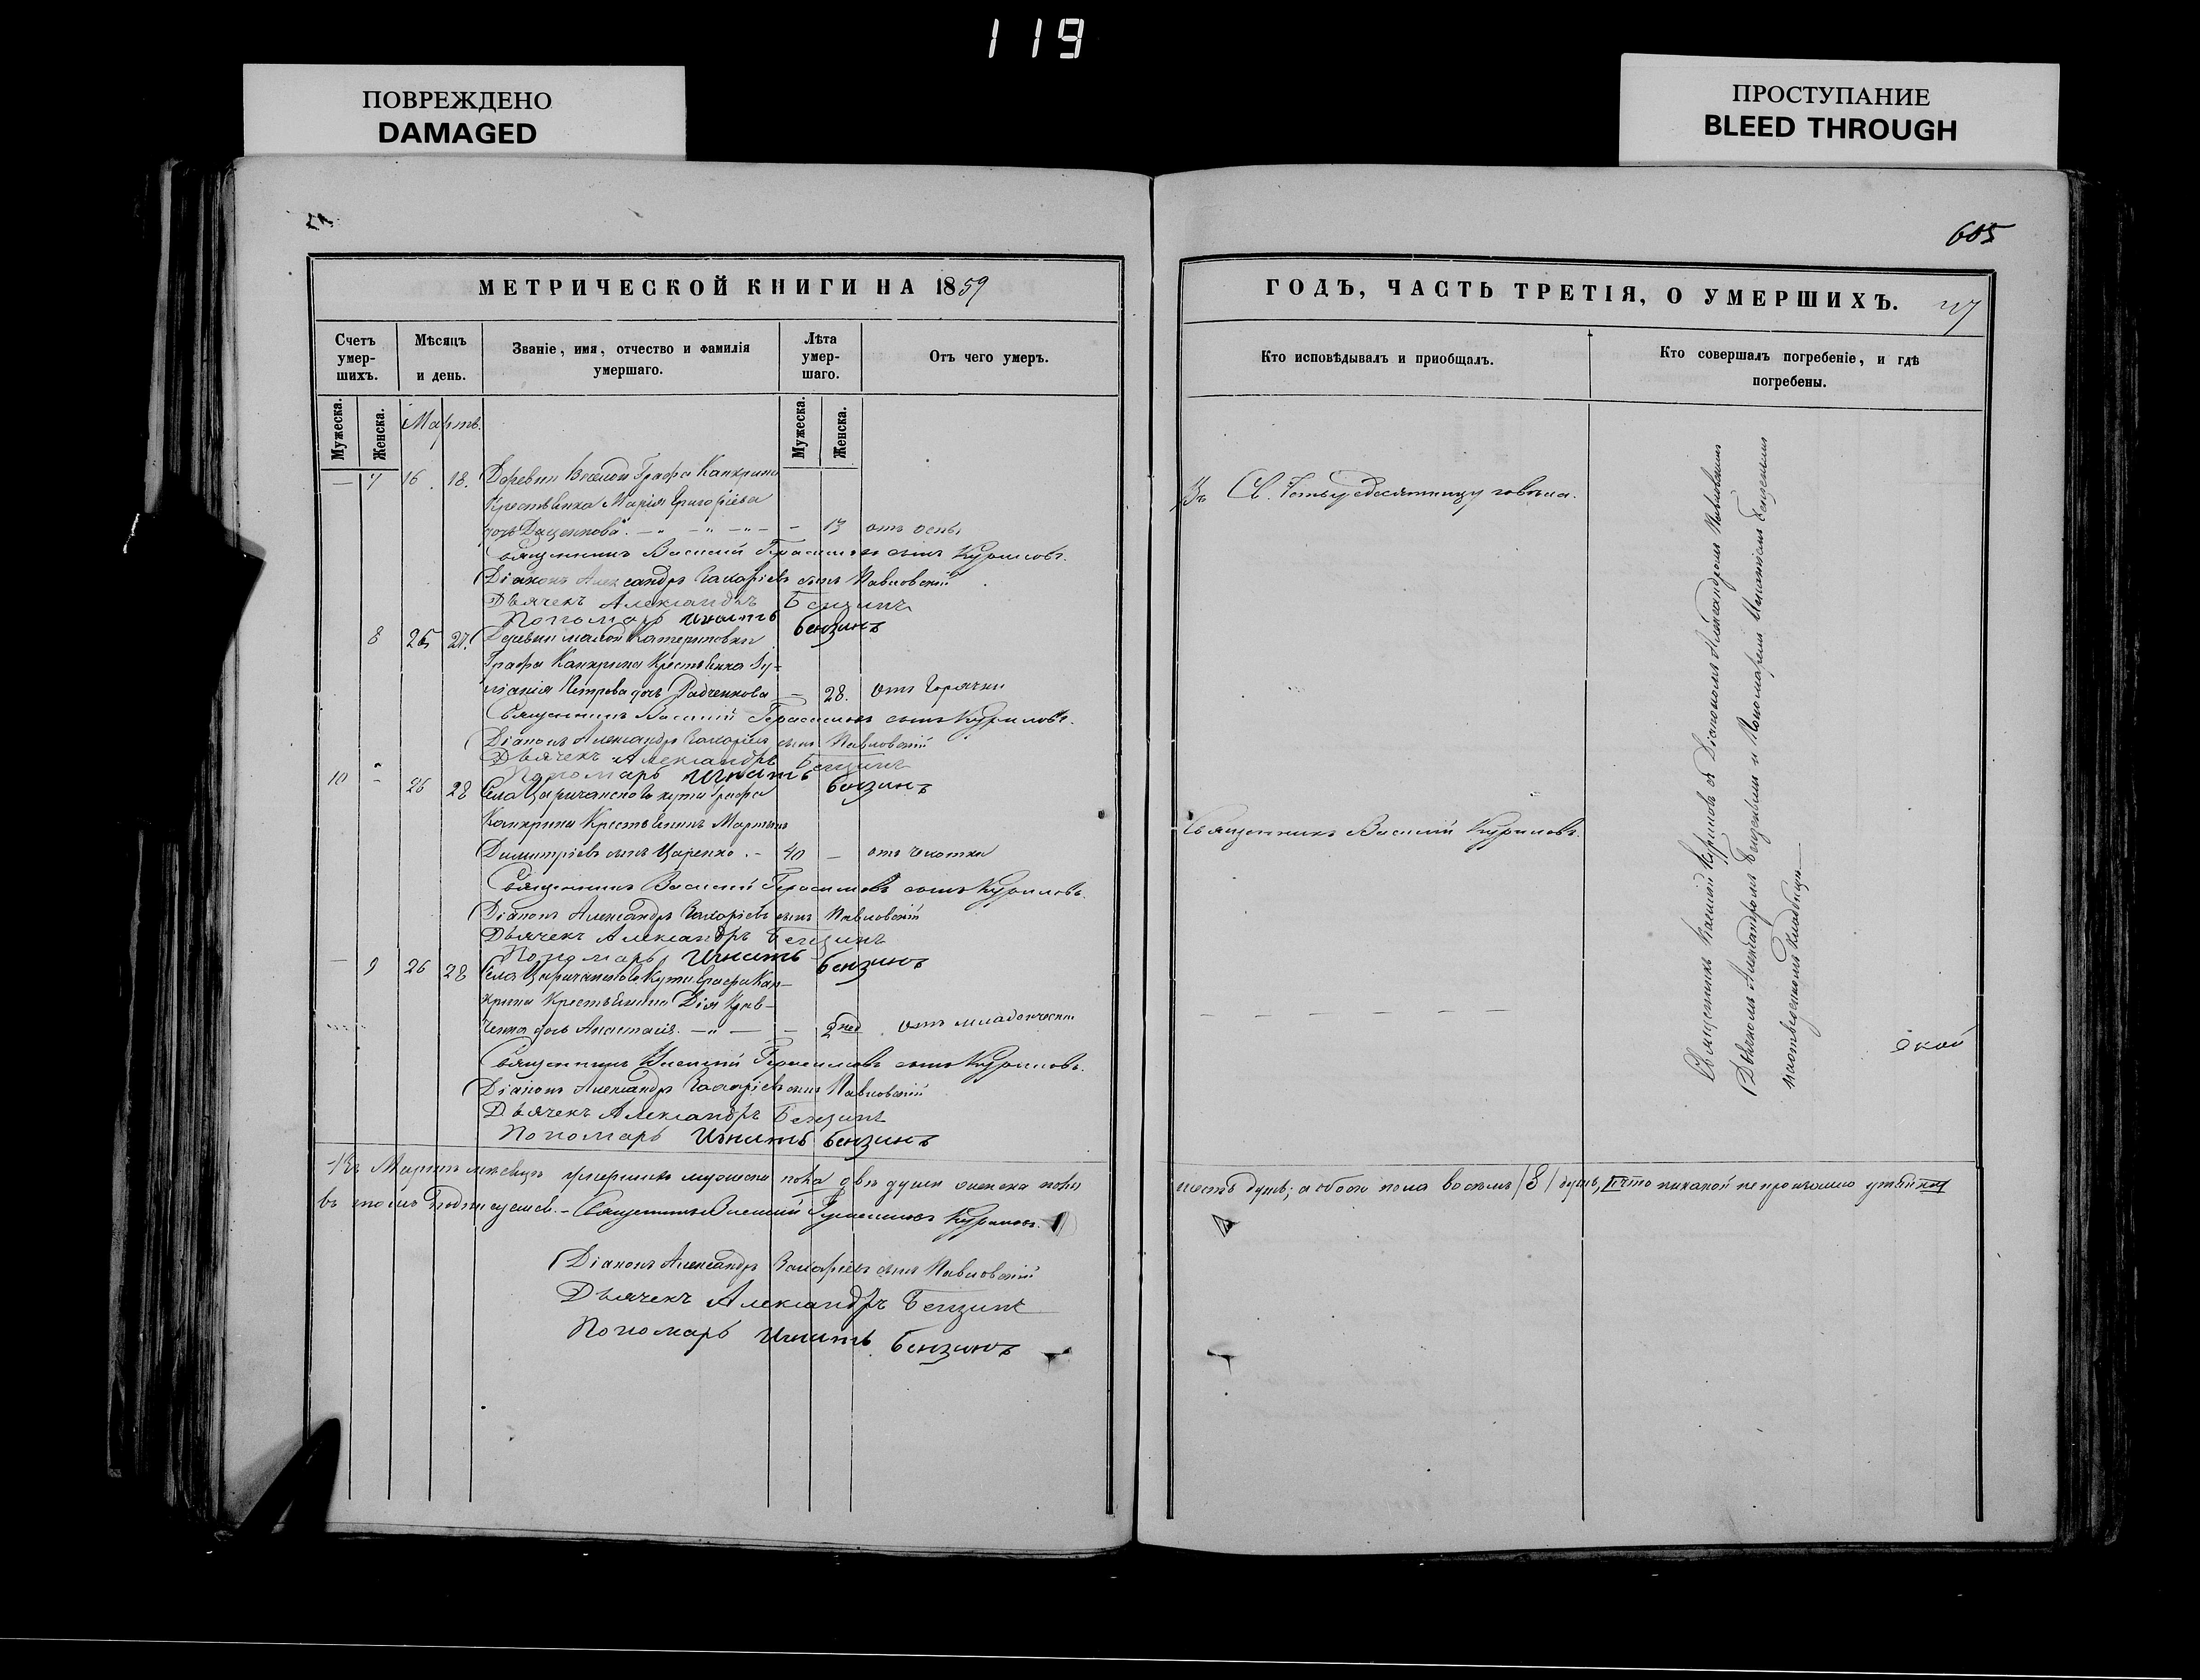 119
ПОВРЕЖДЕНО
DAMAGED
ПРОСТУПАНИЕ
BLEED THROUGH
605
МЕТРИЧЕСКОЙ КНИГИ НА 1859
Счетъ умер-шихъ.
Мѣсяцъ и день.
Званіе, имя, отчество и фамилія умершаго.
Лѣта умер-шаго.
Отъ чего умеръ.
Мужеска.
Женска.
Мартъ.
Мужеска.
Женска.
— 7 16. 18. Деревни Веселой Графа Канкрина
Крестьянка Марія Григоріева
дочь Даценкова — 13 отъ оспы
Священникъ Василій Герасимовъ сынъ Куриловъ.
Діаконъ Александръ Захаріевъ сынъ Павловскій
Дьячекъ Александръ Бензинъ
Пономарь Игнатъ Бензинъ
8 25 27. Деревни малой Катериновки
Графа Канкрина Крестьянка Іу-
ліанія Петрова дочь Радченкова — 28. отъ Горячки
Священникъ Василій Герасимовъ сынъ Куриловъ.
Діаконъ Александръ Захаріевъ сынъ Павловскій
Дьячекъ Александръ Бензинъ
Пономарь Игнатъ Бензинъ
10 — 26 28 Села Царичанского кута Графа
Канкрина Крестьянинъ Мартинъ
Димитріевъ сынъ Царенко. — 40 — отъ чахотки
Священникъ Василій Герасимовъ сынъ Куриловъ.
Діаконъ Александръ Захаріевъ сынъ Павловскій
Дьячекъ Александръ Бензинъ
Пономарь Игнатъ Бензинъ
— 9 26 28 Села Царичанского Кута Графа Кан-
крина Крестьянина Крав-
ченка дочь Анастасія. — 2 нед отъ младенческой
Священникъ Василій Герасимовъ сынъ Куриловъ.
Діаконъ Александръ Захаріевъ сынъ Павловскій
Дьячекъ Александръ Бензинъ
Пономарь Игнатъ Бензинъ
Въ Мартѣ мѣсяцѣ умершихъ мужеска пола двѣ души женска пола
въ томъ подписуемся. — Священникъ Василій Герасимовъ Куриловъ.
Діаконъ Александръ Захаріевъ сынъ Павловскій
Дьячекъ Александръ Бензинъ
Пономарь Игнатъ Бензинъ
ГОДЪ, ЧАСТЬ ТРЕТІЯ, О УМЕРШИХЪ.
Кто исповѣдывалъ и приобщалъ.
Кто совершалъ погребеніе, и гдѣ погребены.
Въ Св. Четыредесятницу говѣла.
Священникъ Василій Куриловъ.
— — — — — —
Священникъ Василій Куриловъ съ Діакономъ Александромъ Павловскимъ
Дьячкомъ Александромъ Бензинымъ и Пономаремъ Игнатіемъ Бензинымъ
на отведенномъ кладбищѣ —
шесть душъ; а обоего пола восемь /8/ душъ, что никакой не произошло утайки